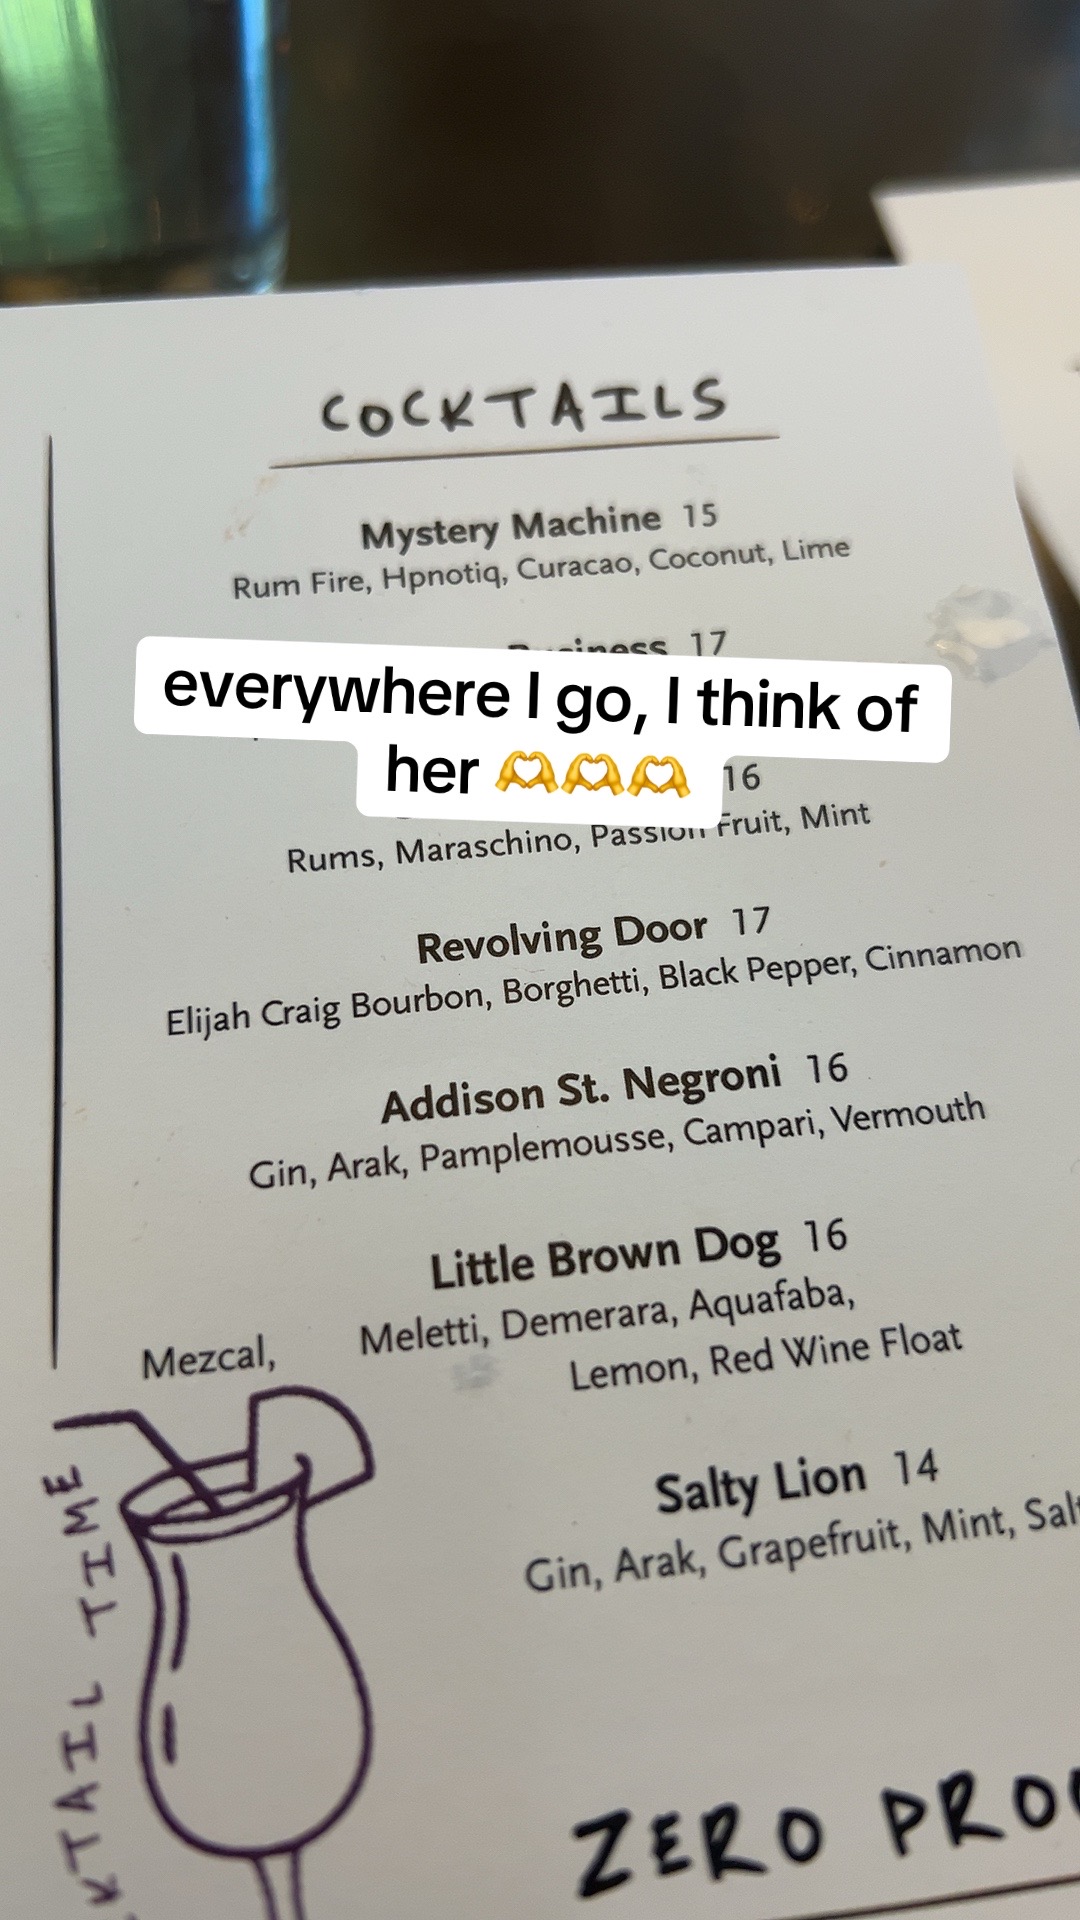 COCKTAILS
Mystery Machine 15
Rum Fire, Hpnotiq, Curacao, Coconut, Lime
17
everywhere I go, I think of
her 🫶🫶🫶
16
Rums, Maraschino, Passion Fruit, Mint
Revolving Door 17
Elijah Craig Bourbon, Borghetti, Black Pepper, Cinnamon
Addison St. Negroni 16
Gin, Arak, Pamplemousse, Campari, Vermouth
Little Brown Dog 16
Mezcal, Meletti, Demerara, Aquafaba,
Lemon, Red Wine Float
Salty Lion 14
Gin, Arak, Grapefruit, Mint, Salt
TAIL TIME
ZERO